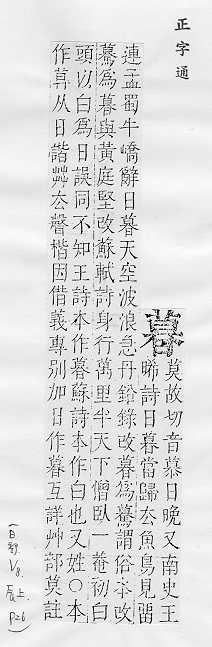 正字通
暮
莫故切音慕日晚又南史王
晞詩日暮當歸去魚鳥見留
連孟蜀牛嶠辭日暮天空波浪急丹鉛錄改暮爲驀謂俗本改
驀爲暮與黃庭堅改蘇軾詩身行萬里半天下僧臥一菴初白
頭以白爲日誤同不知王詩本作暮蘇詩本作白也又姓○本
作莫从日諧艸去聲楷因借義專別加日作暮互詳艸部莫註
(日部 辰上. P26)